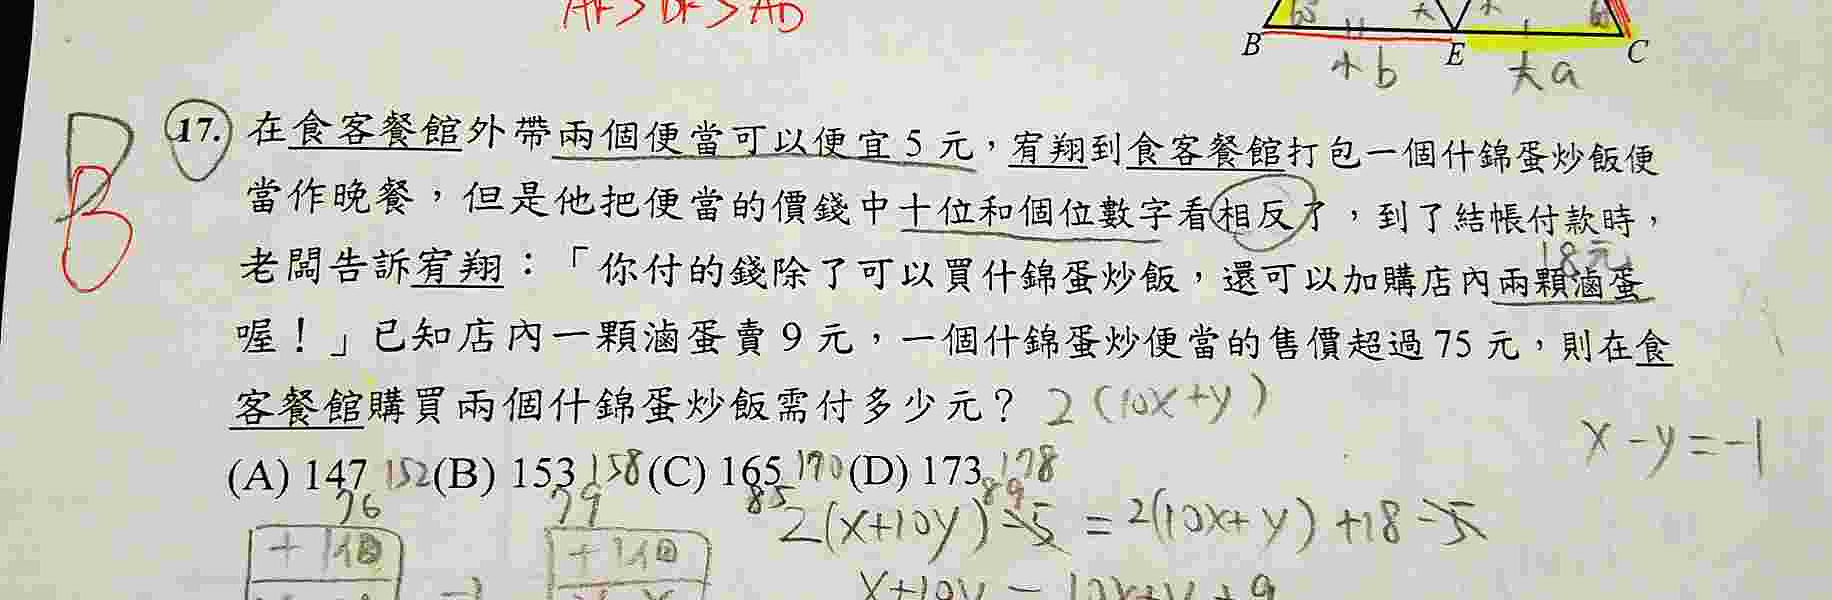 AF > DF > AD
B E C
大 b 大 a
B
B
17. 在食客餐館外帶兩個便當可以便宜 5 元，宥翔到食客餐館打包一個什錦蛋炒飯便
當作晚餐，但是他把便當的價錢中十位和個位數字看相反了，到了結帳付款時，
18元
老闆告訴宥翔：「你付的錢除了可以買什錦蛋炒飯，還可以加購店內兩顆滷蛋
喔！」已知店內一顆滷蛋賣 9 元，一個什錦蛋炒便當的售價超過 75 元，則在食
客餐館購買兩個什錦蛋炒飯需付多少元？ 2(10x+y)
x-y=-1
(A) 147 152 (B) 153 158 (C) 165 170 (D) 173 178
76 79 85 89
2(x+10y)-5 = 2(10x+y)+18-5
x+10y = 10x+y+9